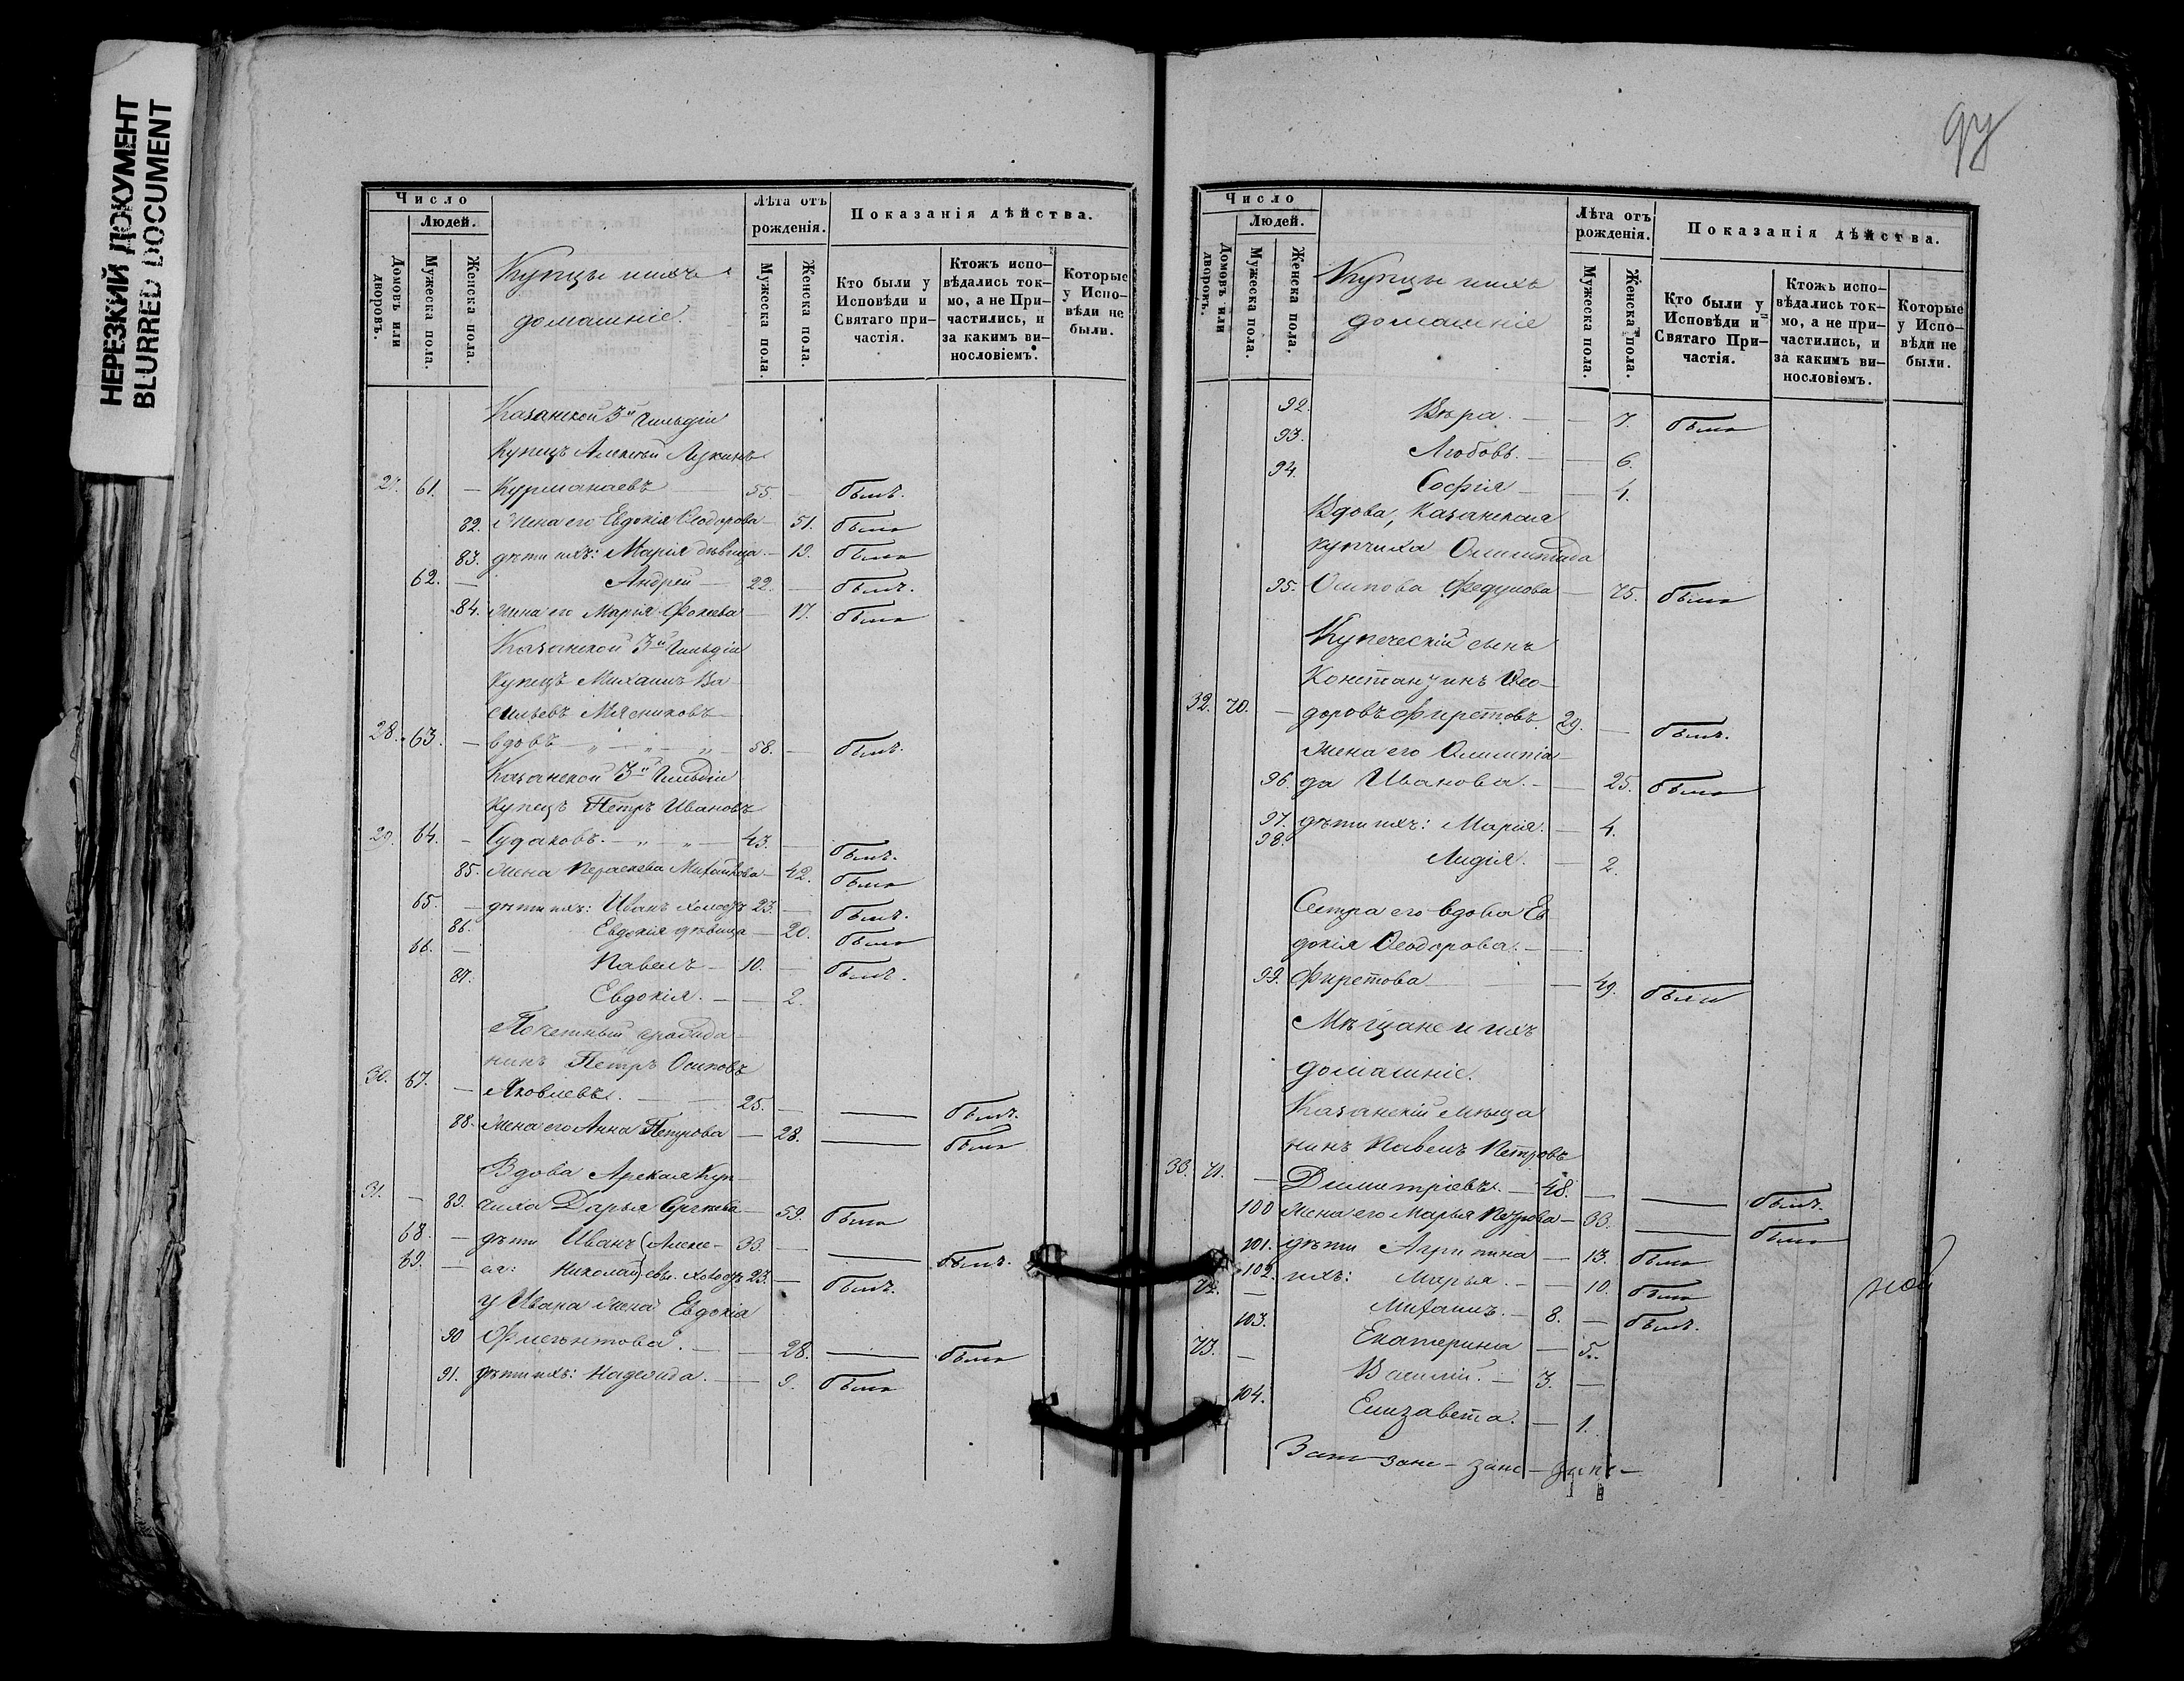 НЕРЕЗКИЙ ДОКУМЕНТ
BLURRED DOCUMENT
Число
Людей.
Домовъ или дворовъ.
Мужеска пола.
Женска пола.
Купцы и ихъ
домашніе.
Лѣта отъ рожденія.
Мужеска пола.
Женска пола.
Показанія дѣйства.
Кто были у Исповѣди и Святаго при-частія.
Ктожъ испо-вѣдались ток-мо, а не При-частились, и за какимъ ви-нословіемъ.
Которые у Испо-вѣди не были.
Казанской 3й Гильдіи
Купецъ Алексѣй Лукинъ
27. 61. — Курманаевъ — 55. — былъ.
82. Жена его Евдокія Ѳеодорова — 51. была
83. дѣти ихъ: Марія дѣвица — 19. была
62. — Андрей — 22. — былъ.
84. жена его Марія Фокеева — 17. была
Казанской 3й Гильдіи
Купецъ Михаилъ Ва
сильевъ Мясниковъ —
28. 63. — вдовъ — „ — „ — „ — 58. — былъ.
Казанской 3й Гильдіи
Купецъ Петръ Ивановъ
29. 64. — Судаковъ. — „ — „ — 43. — былъ.
85. Жена Параскева Михайлова — 42. была
65. — дѣти ихъ: Иванъ холостъ 23. — былъ.
86. Евдокія дѣвица — 20. была
66. — Павелъ — 10. — былъ.
87. Евдокія. — — 2.
Почетный гражда
нинъ Петръ Осиповъ
30. 67. — Яковлевъ. — — 25. — — былъ.
88. Жена его Анна Петрова — 28. — была
Вдова Арская Куп
31. — 89. чиха Дарья Сергѣева — 59. была
68. — дѣти Иванъ (Алексе- 33. — — былъ.
69. — ея: Николай) евы. холостъ 23. — былъ.
у Ивана жена Евдокія
90 Флегонтова. — — 28. — была
91. дѣти ихъ: Надежда. — — 9. была
97
Число
Людей.
Домовъ или дворовъ.
Мужеска пола.
Женска пола.
Купцы и ихъ
домашніе
Лѣта отъ рожденія.
Мужеска пола.
Женска пола.
Показанія дѣйства.
Кто были у Исповѣди и Святаго При-частія.
Ктожъ испо-вѣдались ток-мо, а не при-частились, и за какимъ ви-нословіемъ.
Которые у Испо-вѣди не были.
92. Вѣра. — — 7. была
93. Любовь. — — 6.
94. Софія — — 4.
Вдова, Казанская
купчиха Олимпіада
95. Осипова Федулова — 75. была
Купеческій сынъ
Константинъ Ѳео-
32. 70. — доровъ Фиретовъ 29. — былъ.
Жена его Олимпіа-
96. да Иванова. — — 25. была
97. дѣти ихъ: Марія. — 4.
98. Лидія. — 2.
Сестра его вдова Ев
докія Ѳеодорова. — —
99. Фиретова — 49. была
Мѣщане и ихъ
домашніе.
Казанскій мѣща
нинъ Павелъ Петровъ
33. 71. — Димитріевъ. — 48. — — былъ.
100 Жена его Марья Петрова — 33. — была
101. дѣти Агрипина — 13. была
102. ихъ: Марья. — — 10. была
72. — Михаилъ. — 8. — былъ.
103. Екатерина — 5.
73. — Василій. — 3. —
104. Елизавета. — 1.